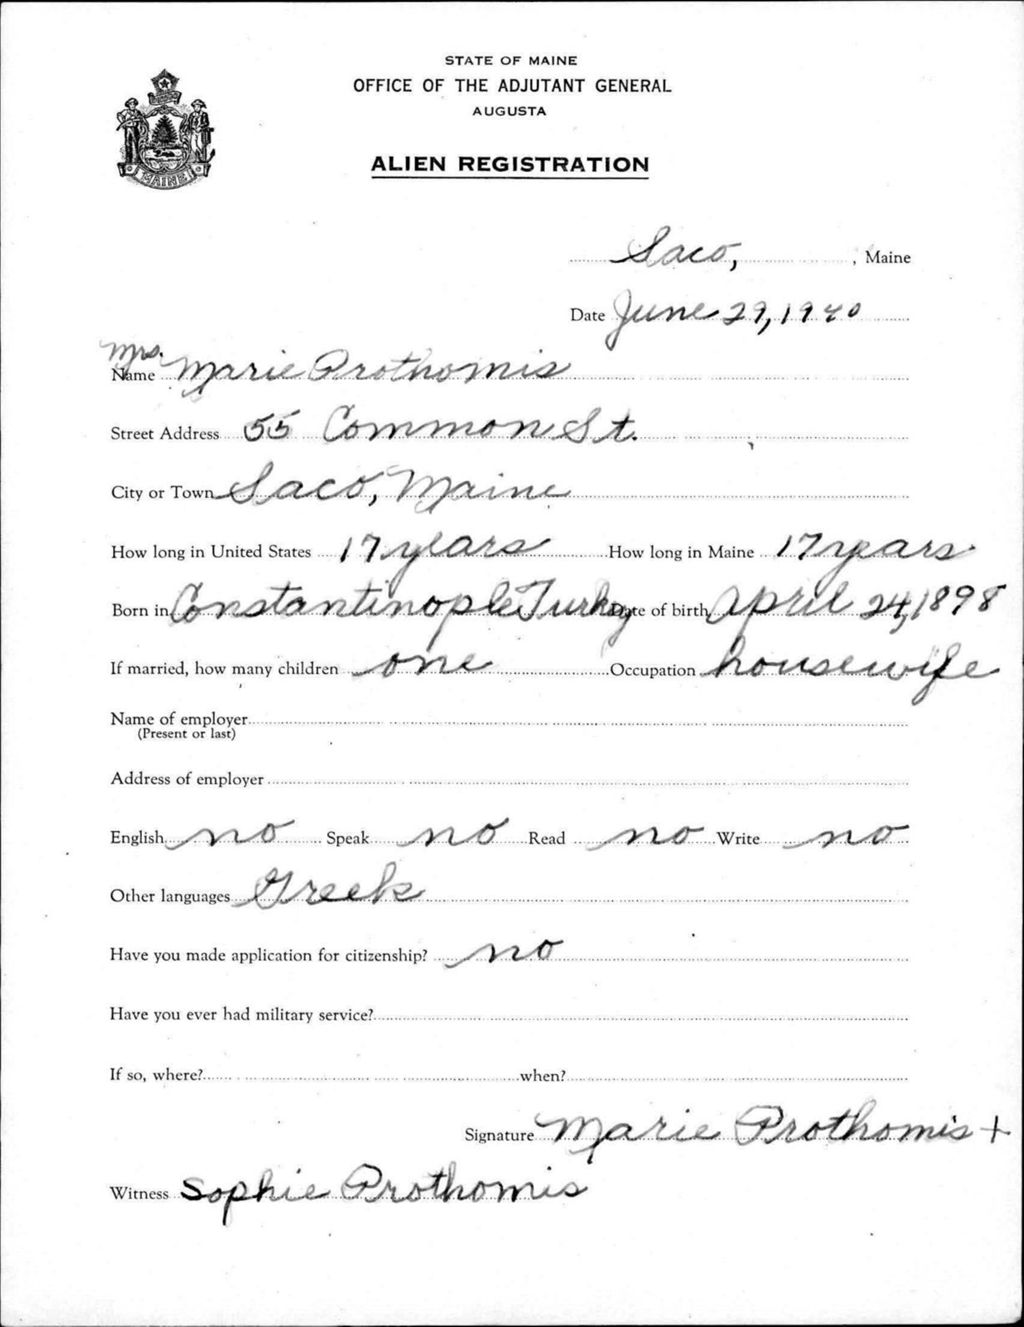 STATE OF MAINE
OFFICE OF THE ADJUTANT GENERAL
AUGUSTA
ALIEN REGISTRATION
MAINE
Saco, , Maine
Date June 29, 1940
Mrs.
Name Marie Prothomis
Street Address 55 Common St.
City or Town Saco, Maine
How long in United States 17 years How long in Maine 17 years
Born in Constantinople Turkey Date of birth April 24, 1898
If married, how many children one Occupation housewife
Name of employer
(Present or last)
Address of employer
English no Speak no Read no Write no
Other languages Greek
Have you made application for citizenship? no
Have you ever had military service?
If so, where? when?
Signature Marie Prothomis +
Witness Sophie Prothomis